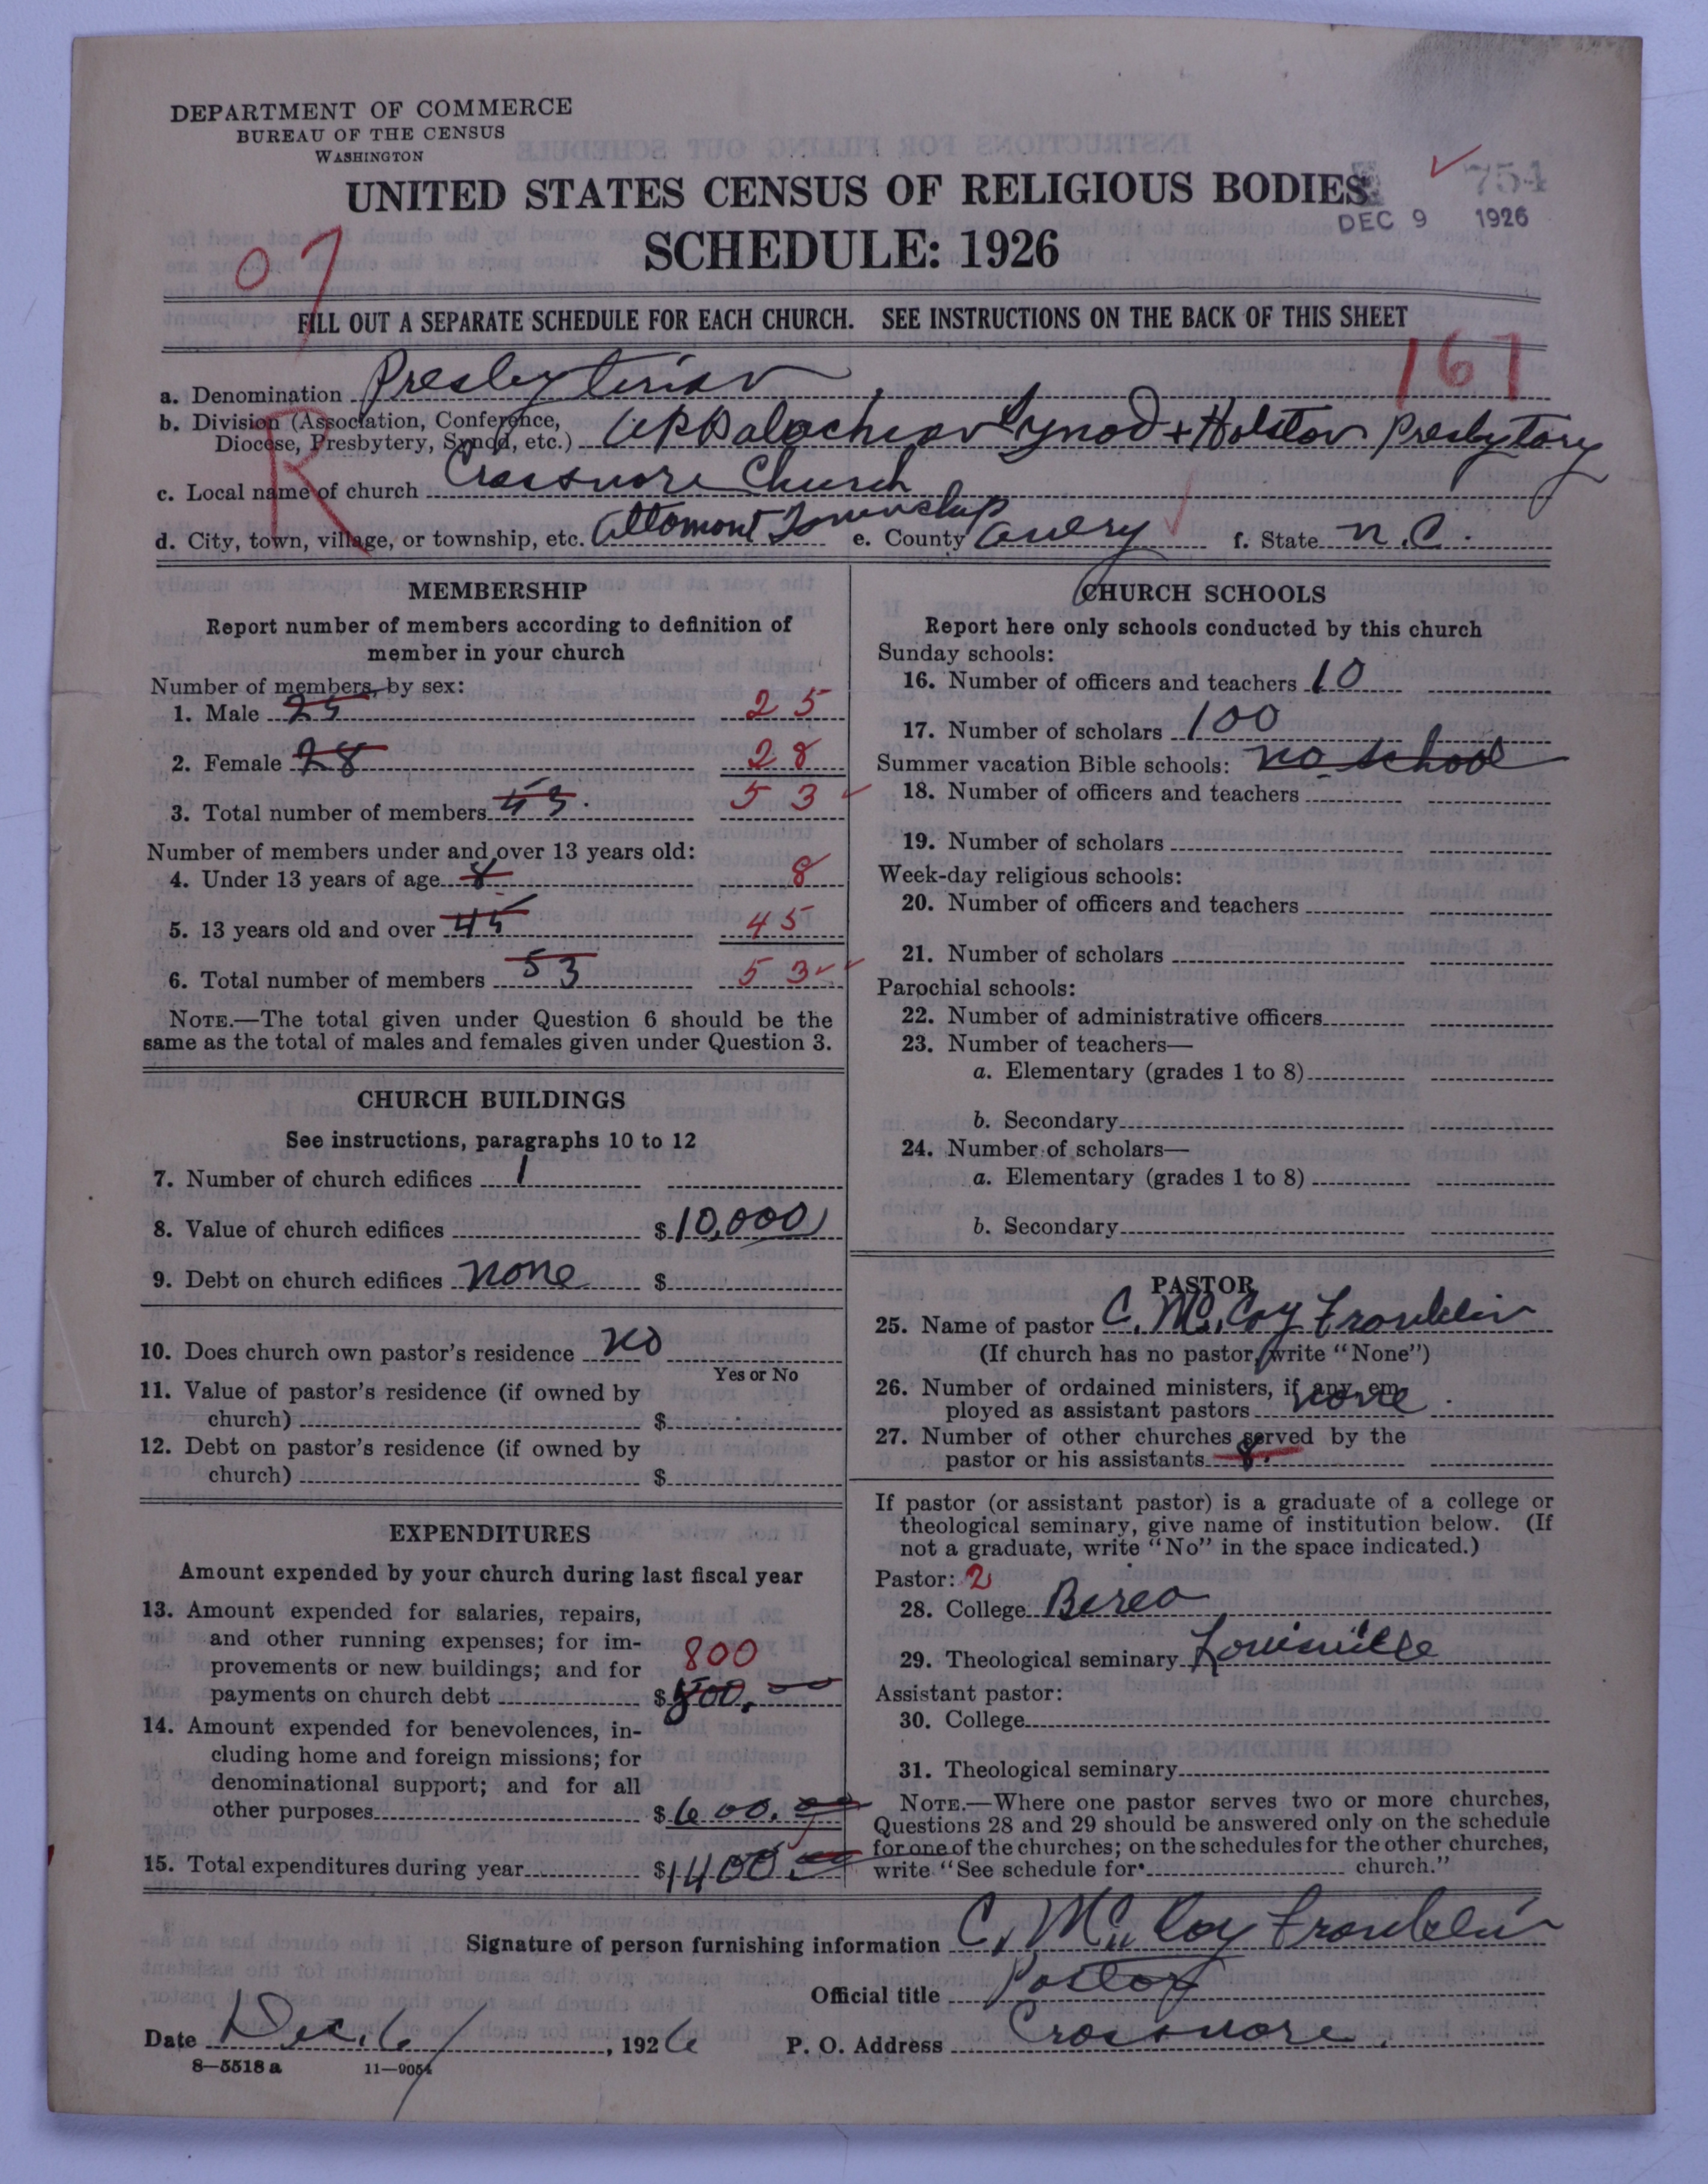 DEPARTMENT OF COMMERCE
BUREAU OF THE CENSUS
WASHINGTON
UNITED STATES CENSUS OF RELIGIOUS BODIES
754
DEC 9 1926
SCHEDULE: 1926
07
FILL OUT A SEPARATE SCHEDULE FOR EACH CHURCH. SEE INSTRUCTIONS ON THE BACK OF THIS SHEET
161
a. Denomination Presbyterian
b. Division (Association, Conference, Diocese, Presbytery, Synod, etc.) Appalachian Synod + Holston Presbytery
R
c. Local name of church Crossnore Church
d. City, town, village, or township, etc. Altomont Township e. County Avery f. State N.C.
MEMBERSHIP
Report number of members according to definition of
member in your church
Number of members, by sex:
1. Male 25 25
2. Female 28 28
3. Total number of members 53. 53
Number of members under and over 13 years old:
4. Under 13 years of age 8 8
5. 13 years old and over 45 45
6. Total number of members 53 53
NOTE.—The total given under Question 6 should be the
same as the total of males and females given under Question 3.
CHURCH BUILDINGS
See instructions, paragraphs 10 to 12
7. Number of church edifices 1
8. Value of church edifices $10,000
9. Debt on church edifices none $
10. Does church own pastor's residence no
Yes or No
11. Value of pastor's residence (if owned by
church) $
12. Debt on pastor's residence (if owned by
church) $
EXPENDITURES
Amount expended by your church during last fiscal year
13. Amount expended for salaries, repairs,
and other running expenses; for im-
provements or new buildings; and for 800
payments on church debt $800.00
14. Amount expended for benevolences, in-
cluding home and foreign missions; for
denominational support; and for all
other purposes $600.00
15. Total expenditures during year $1400.00
CHURCH SCHOOLS
Report here only schools conducted by this church
Sunday schools:
16. Number of officers and teachers 10
17. Number of scholars 100
Summer vacation Bible schools: no school
18. Number of officers and teachers
19. Number of scholars
Week-day religious schools:
20. Number of officers and teachers
21. Number of scholars
Parochial schools:
22. Number of administrative officers
23. Number of teachers—
a. Elementary (grades 1 to 8)
b. Secondary
24. Number of scholars—
a. Elementary (grades 1 to 8)
b. Secondary
PASTOR
25. Name of pastor C. McCoy Franklin
(If church has no pastor, write "None")
26. Number of ordained ministers, if any, em
ployed as assistant pastors none
27. Number of other churches served by the
pastor or his assistants 8.
If pastor (or assistant pastor) is a graduate of a college or
theological seminary, give name of institution below. (If
not a graduate, write "No" in the space indicated.)
Pastor: 2
28. College Berea
29. Theological seminary Louisville
Assistant pastor:
30. College
31. Theological seminary
NOTE.—Where one pastor serves two or more churches,
Questions 28 and 29 should be answered only on the schedule
for one of the churches; on the schedules for the other churches,
write "See schedule for church."
Signature of person furnishing information C. McCoy Franklin
Official title Pastor
Date Dec. 6, 1926 P. O. Address Crossnore
8—5518 a 11—9054